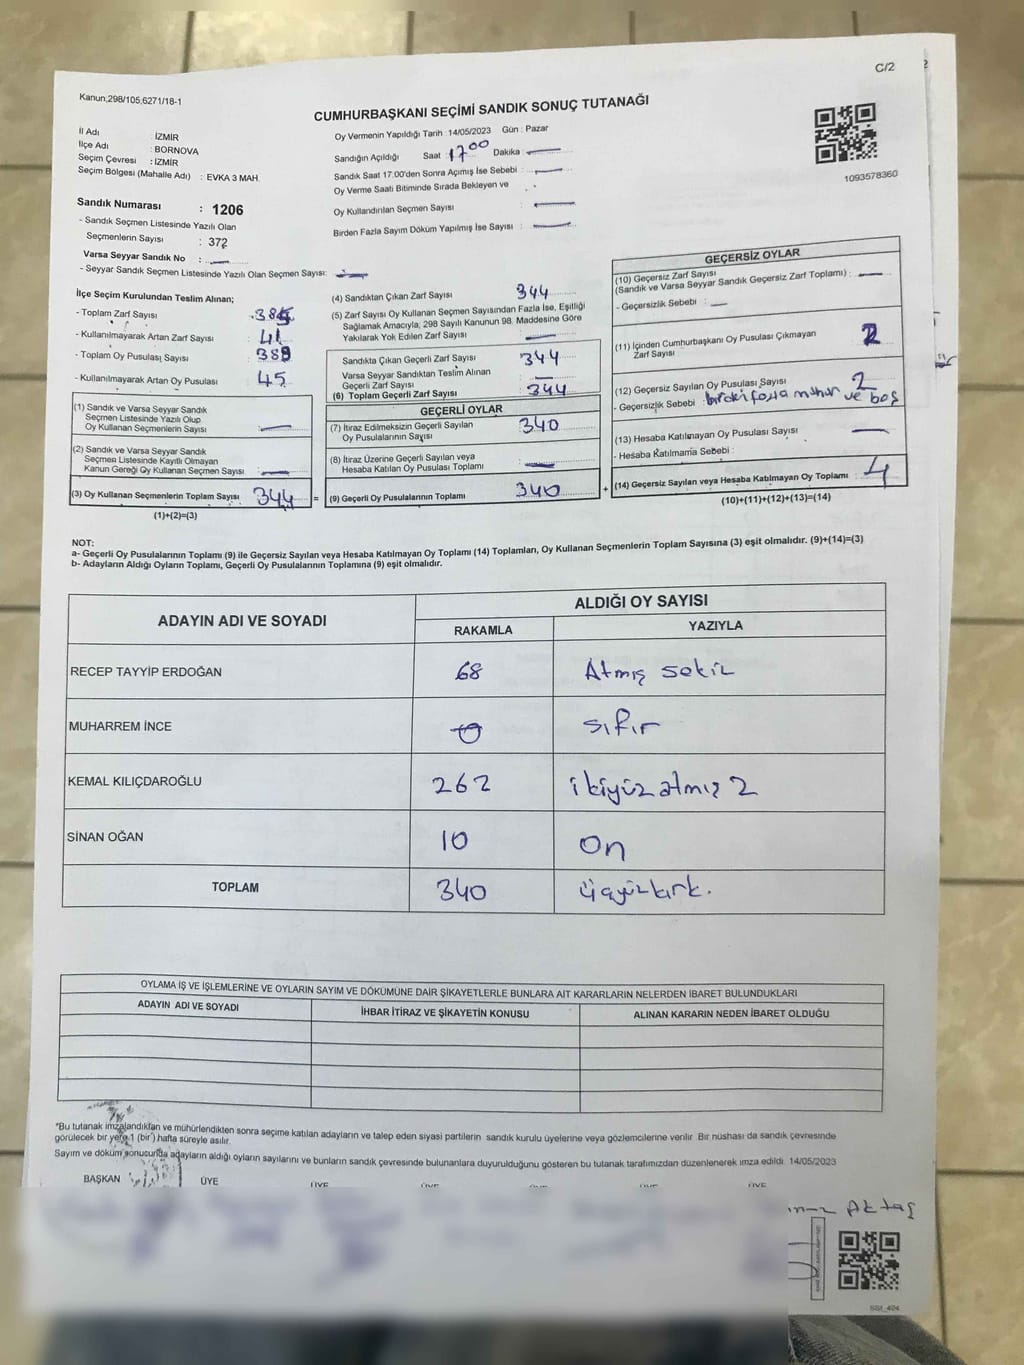 C/2
Kanun;298/105,6271/18-1
CUMHURBAŞKANI SEÇİMİ SANDIK SONUÇ TUTANAĞI
İl Adı : İZMİR
İlçe Adı : BORNOVA
Seçim Çevresi : İZMİR
Seçim Bölgesi (Mahalle Adı) : EVKA 3 MAH.
Oy Vermenin Yapıldığı Tarih : 14/05/2023 Gün : Pazar
Sandığın Açıldığı Saat : 17 00 Dakika :
Sandık Saat 17:00'den Sonra Açımış İse Sebebi :
Oy Verme Saati Bitiminde Sırada Bekleyen ve
Oy Kullandırılan Seçmen Sayısı :
Birden Fazla Sayım Döküm Yapılmış İse Sayısı :
1093578360
Sandık Numarası : 1206
- Sandık Seçmen Listesinde Yazılı Olan
Seçmenlerin Sayısı : 372
Varsa Seyyar Sandık No :
- Seyyar Sandık Seçmen Listesinde Yazılı Olan Seçmen Sayısı:
İlçe Seçim Kurulundan Teslim Alınan;
- Toplam Zarf Sayısı : 385
- Kullanılmayarak Artan Zarf Sayısı : 41
- Toplam Oy Pusulası Sayısı : 389
- Kullanılmayarak Artan Oy Pusulası : 45
(1) Sandık ve Varsa Seyyar Sandık
Seçmen Listesinde Yazılı Olup
Oy Kullanan Seçmenlerin Sayısı
(2) Sandık ve Varsa Seyyar Sandık
Seçmen Listesinde Kayıtlı Olmayan
Kanun Gereği Oy Kullanan Seçmen Sayısı
(3) Oy Kullanan Seçmenlerin Toplam Sayısı 344 =
(1)+(2)=(3)
(4) Sandıktan Çıkan Zarf Sayısı 344
(5) Zarf Sayısı Oy Kullanan Seçmen Sayısından Fazla İse, Eşitliği
Sağlamak Amacıyla; 298 Sayılı Kanunun 98. Maddesine Göre
Yakılarak Yok Edilen Zarf Sayısı
Sandıkta Çıkan Geçerli Zarf Sayısı 344
Varsa Seyyar Sandıktan Teslim Alınan
Geçerli Zarf Sayısı
(6) Toplam Geçerli Zarf Sayısı 344
GEÇERLİ OYLAR
(7) İtiraz Edilmeksizin Geçerli Sayılan
Oy Pusulalarının Sayısı 340
(8) İtiraz Üzerine Geçerli Sayılan veya
Hesaba Katılan Oy Pusulası Toplamı
(9) Geçerli Oy Pusulalarının Toplamı 340 +
GEÇERSİZ OYLAR
(10) Geçersiz Zarf Sayısı
(Sandık ve Varsa Seyyar Sandık Geçersiz Zarf Toplamı) :
- Geçersizlik Sebebi :
(11) İçinden Cumhurbaşkanı Oy Pusulası Çıkmayan
Zarf Sayısı 2
(12) Geçersiz Sayılan Oy Pusulası Sayısı 2
- Geçersizlik Sebebi : birden fazla mühür ve boş
(13) Hesaba Katılmayan Oy Pusulası Sayısı
- Hesaba Katılmama Sebebi :
(14) Geçersiz Sayılan veya Hesaba Katılmayan Oy Toplamı 4
(10)+(11)+(12)+(13)=(14)
NOT:
a- Geçerli Oy Pusulalarının Toplamı (9) ile Geçersiz Sayılan veya Hesaba Katılmayan Oy Toplamı (14) Toplamları, Oy Kullanan Seçmenlerin Toplam Sayısına (3) eşit olmalıdır. (9)+(14)=(3)
b- Adayların Aldığı Oyların Toplamı, Geçerli Oy Pusulalarının Toplamına (9) eşit olmalıdır.
ADAYIN ADI VE SOYADI
ALDIĞI OY SAYISI
RAKAMLA YAZIYLA
RECEP TAYYİP ERDOĞAN 68 Atmış sekiz
MUHARREM İNCE 0 sıfır
KEMAL KILIÇDAROĞLU 262 ikiyüz atmış 2
SİNAN OĞAN 10 On
TOPLAM 340 üçyüzkırk.
OYLAMA İŞ VE İŞLEMLERİNE VE OYLARIN SAYIM VE DÖKÜMÜNE DAİR ŞİKAYETLERLE BUNLARA AİT KARARLARIN NELERDEN İBARET BULUNDUKLARI
ADAYIN ADI VE SOYADI İHBAR İTİRAZ VE ŞİKAYETİN KONUSU ALINAN KARARIN NEDEN İBARET OLDUĞU
*Bu tutanak imzalandıktan ve mühürlendikten sonra seçime katılan adayların ve talep eden siyasi partilerin sandık kurulu üyelerine veya gözlemcilerine verilir. Bir nüshası da sandık çevresinde
görülecek bir yere 1 (bir) hafta süreyle asılır.
Sayım ve döküm sonucunda adayların aldığı oyların sayılarını ve bunların sandık çevresinde bulunanlara duyurulduğunu gösteren bu tutanak tarafımızdan düzenlenerek imza edildi. 14/05/2023
BAŞKAN ÜYE ÜYE ÜYE ÜYE ÜYE ÜYE
Aktaş